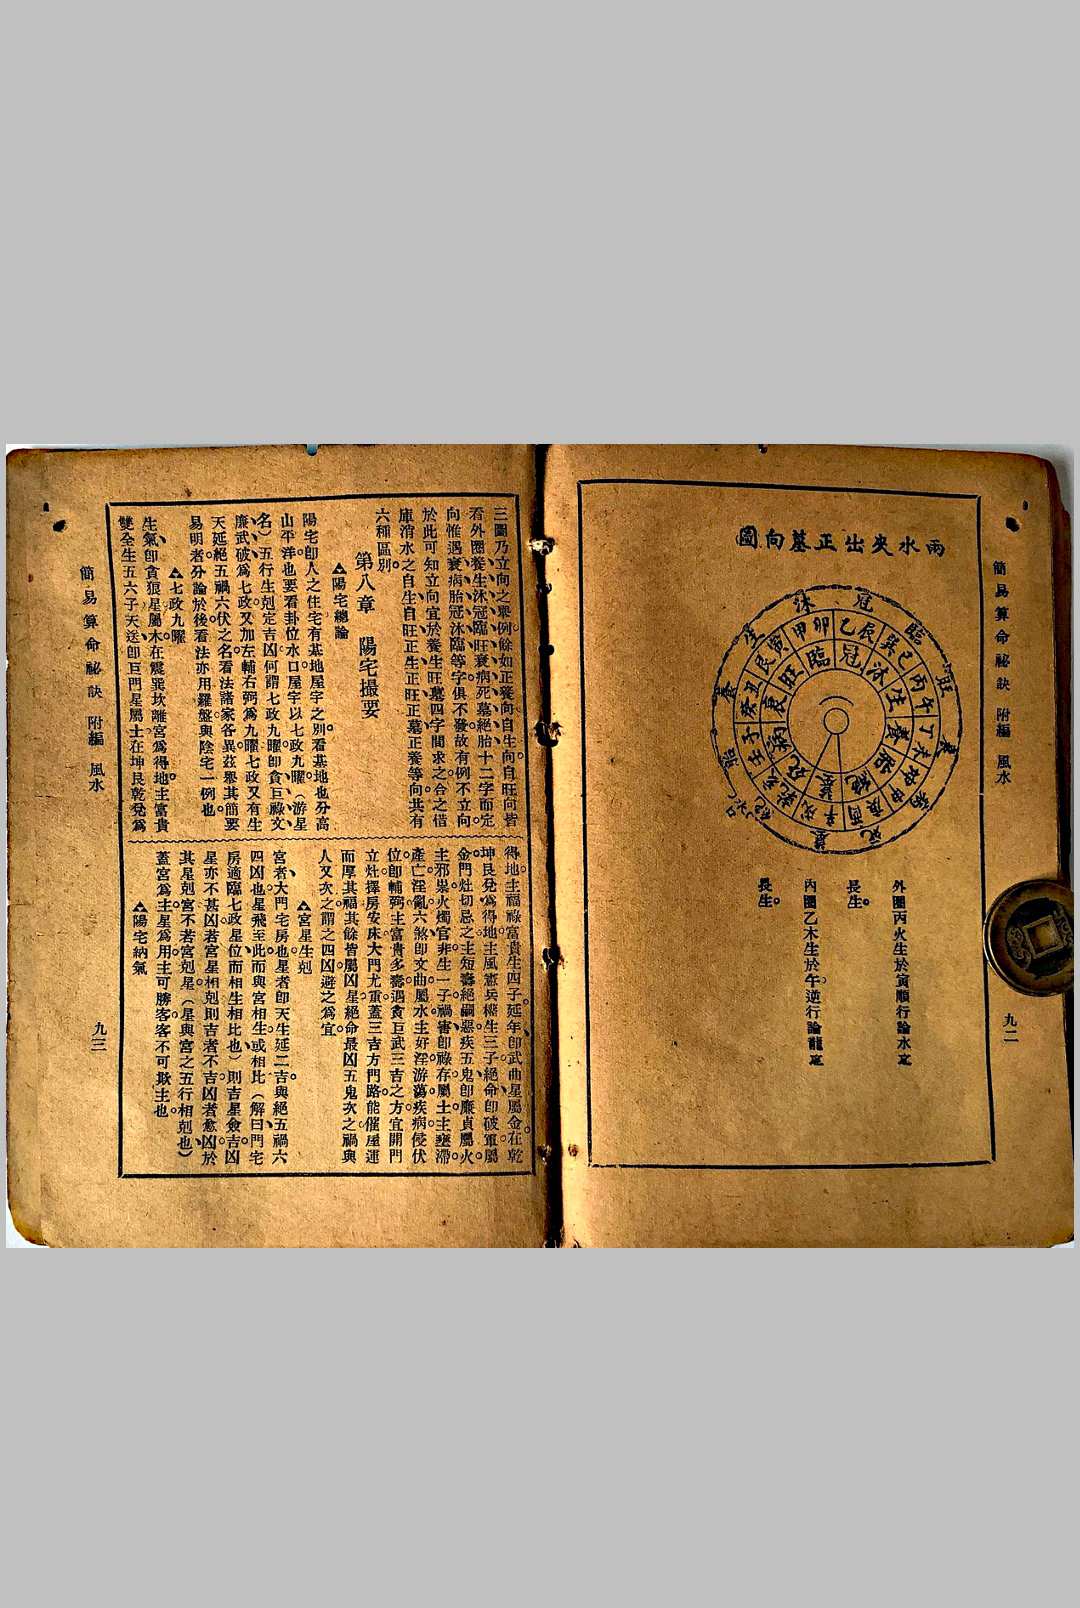 簡易算命祕訣 附編 風水
九二
兩水夾出正墓向圖
冠
臨
旺
衰
病
死
墓
絕
胎
養
生
沐
卯
乙
辰
巽
巳
丙
午
丁
未
坤
申
庚
酉
辛
戌
乾
亥
壬
子
癸
丑
艮
寅
甲
冠
沐
生
養
胎
絕
墓
死
病
衰
旺
臨
外圈丙火生於寅順行論水定
長生。
內圈乙木生於午逆行論龍定
長生。
三圖乃立向之舉例餘如正養向自生向自旺向皆
看外圈養生沐冠臨旺衰病死墓絕胎十二字而定
向惟遇衰病胎冠沐臨等字俱不發故有例不立向
於此可知立向宜於養生旺墓四字間求之合之借
庫消水之自生自旺正生正旺正墓正養等向共有
六種區別。
第八章 陽宅撮要
陽宅總論
陽宅卽人之住宅有基地屋宇之別看基地也分高
山平洋也要看卦位水口屋宇以七政九曜(游星
名)五行生剋定吉凶何謂七政九曜卽貪巨祿文
廉武破爲七政又加左輔右弼爲九曜七政又有生
天延絕五禍六伏之名看法諸家各異茲舉其簡要
易明者分論於後看法亦用羅盤與陰宅一例也
七政九曜
生氣卽貪狼星屬木在震巽坎離宮爲得地主富貴
雙全生五六子天送卽巨門星屬土在坤艮乾兌爲
得地主福祿富貴生四子延年卽武曲星屬金在乾
坤艮兌爲得地主風憲兵權生三子絕命卽破軍屬
金門灶切忌之主短壽絕嗣惡疾五鬼卽廉貞屬火
主邪祟火燭官非生一子禍害卽祿存屬土主壅滯
產亡淫亂六煞卽文曲屬水主好淫游蕩疾病侵伏
位卽輔弼主富貴多壽遇貪巨武三吉之方宜開門
立灶擇房安床大門尤重蓋三吉方門路能催屋運
而厚其福其餘皆屬凶星絕命最凶五鬼次之禍與
人又次之謂之四凶避之爲宜
宮星生剋
宮者大門宅房也星者卽天生延二吉與絕五禍六
四凶也星飛至此而與宮相生或相比(解曰門宅
房適臨七政星位而相生相比也)則吉星僉吉凶
星亦不甚凶若宮星相剋則吉者不吉凶者愈凶於
其星剋宮不若宮剋星(星與宮之五行相剋也)
蓋宮爲主星爲用主可勝客客不可欺主也
陽宅納氣
簡易算命祕訣 附編 風水
九三